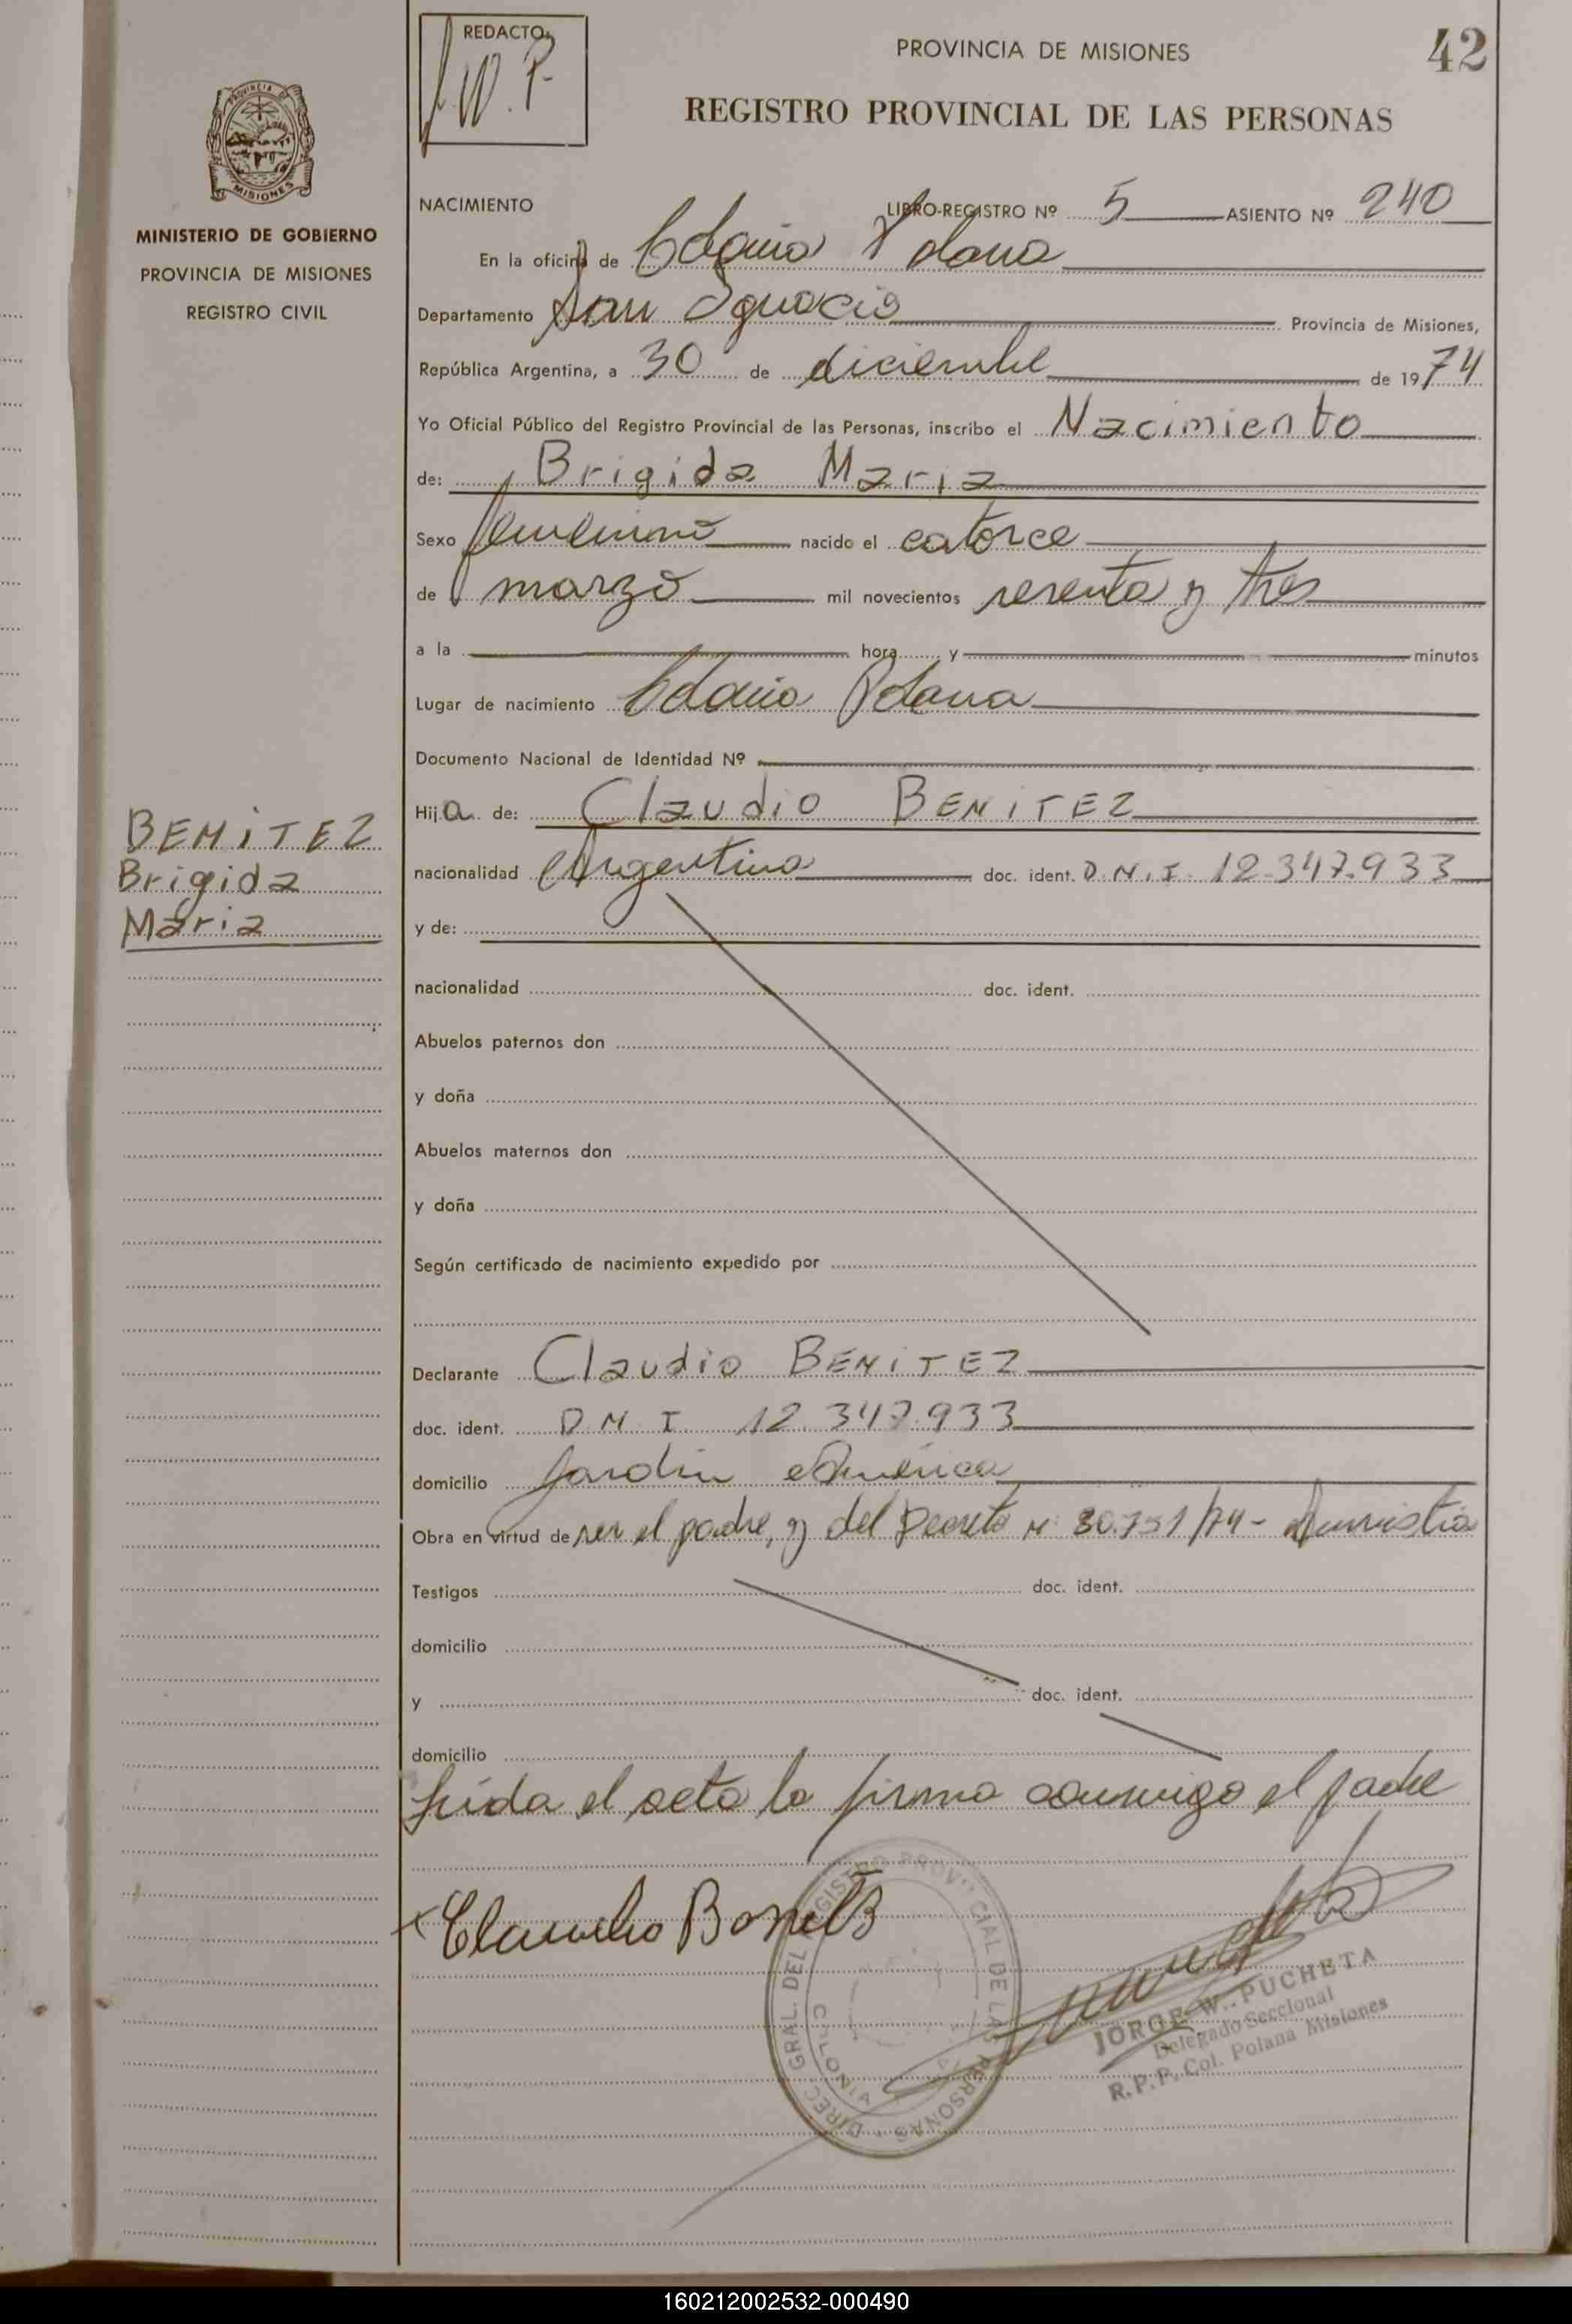 REDACTO:
J.W.P.
PROVINCIA DE MISIONES
42
REGISTRO PROVINCIAL DE LAS PERSONAS
PROVINCIA DE
MISIONES
MINISTERIO DE GOBIERNO
PROVINCIA DE MISIONES
REGISTRO CIVIL
NACIMIENTO LIBRO-REGISTRO Nº 5 ASIENTO Nº 240
En la oficina de Colonia Polana
Departamento San Ignacio Provincia de Misiones,
República Argentina, a 30 de diciembre de 1974
Yo Oficial Público del Registro Provincial de las Personas, inscribo el Nacimiento
de: Brigida Maria
Sexo femenino nacido el catorce
de marzo mil novecientos setenta y tres
a la hora y minutos
Lugar de nacimiento Colonia Polana
Documento Nacional de Identidad Nº
Hija de: Claudio BENITEZ
BENITEZ
Brigida
Maria
nacionalidad Argentina doc. ident. D.N.I. 12.347.933
y de:
nacionalidad doc. ident.
Abuelos paternos don
y doña
Abuelos maternos don
y doña
Según certificado de nacimiento expedido por
Declarante Claudio BENITEZ
doc. ident. D.N.I 12.347.933
domicilio Jardin America
Obra en virtud de ser el padre, y del Decreto Nº /74- Amnistia
Testigos doc. ident.
domicilio
y doc. ident.
domicilio
Leída el acta la firma conmigo el padre
Claudio
DIREC. GRAL. DEL REGISTRO PROVINCIAL DE LAS PERSONAS
COLONIA
JORGE W. PUCHETA
Delegado Seccional
R.P.P. Col. Polana Misiones
160212002532-000490